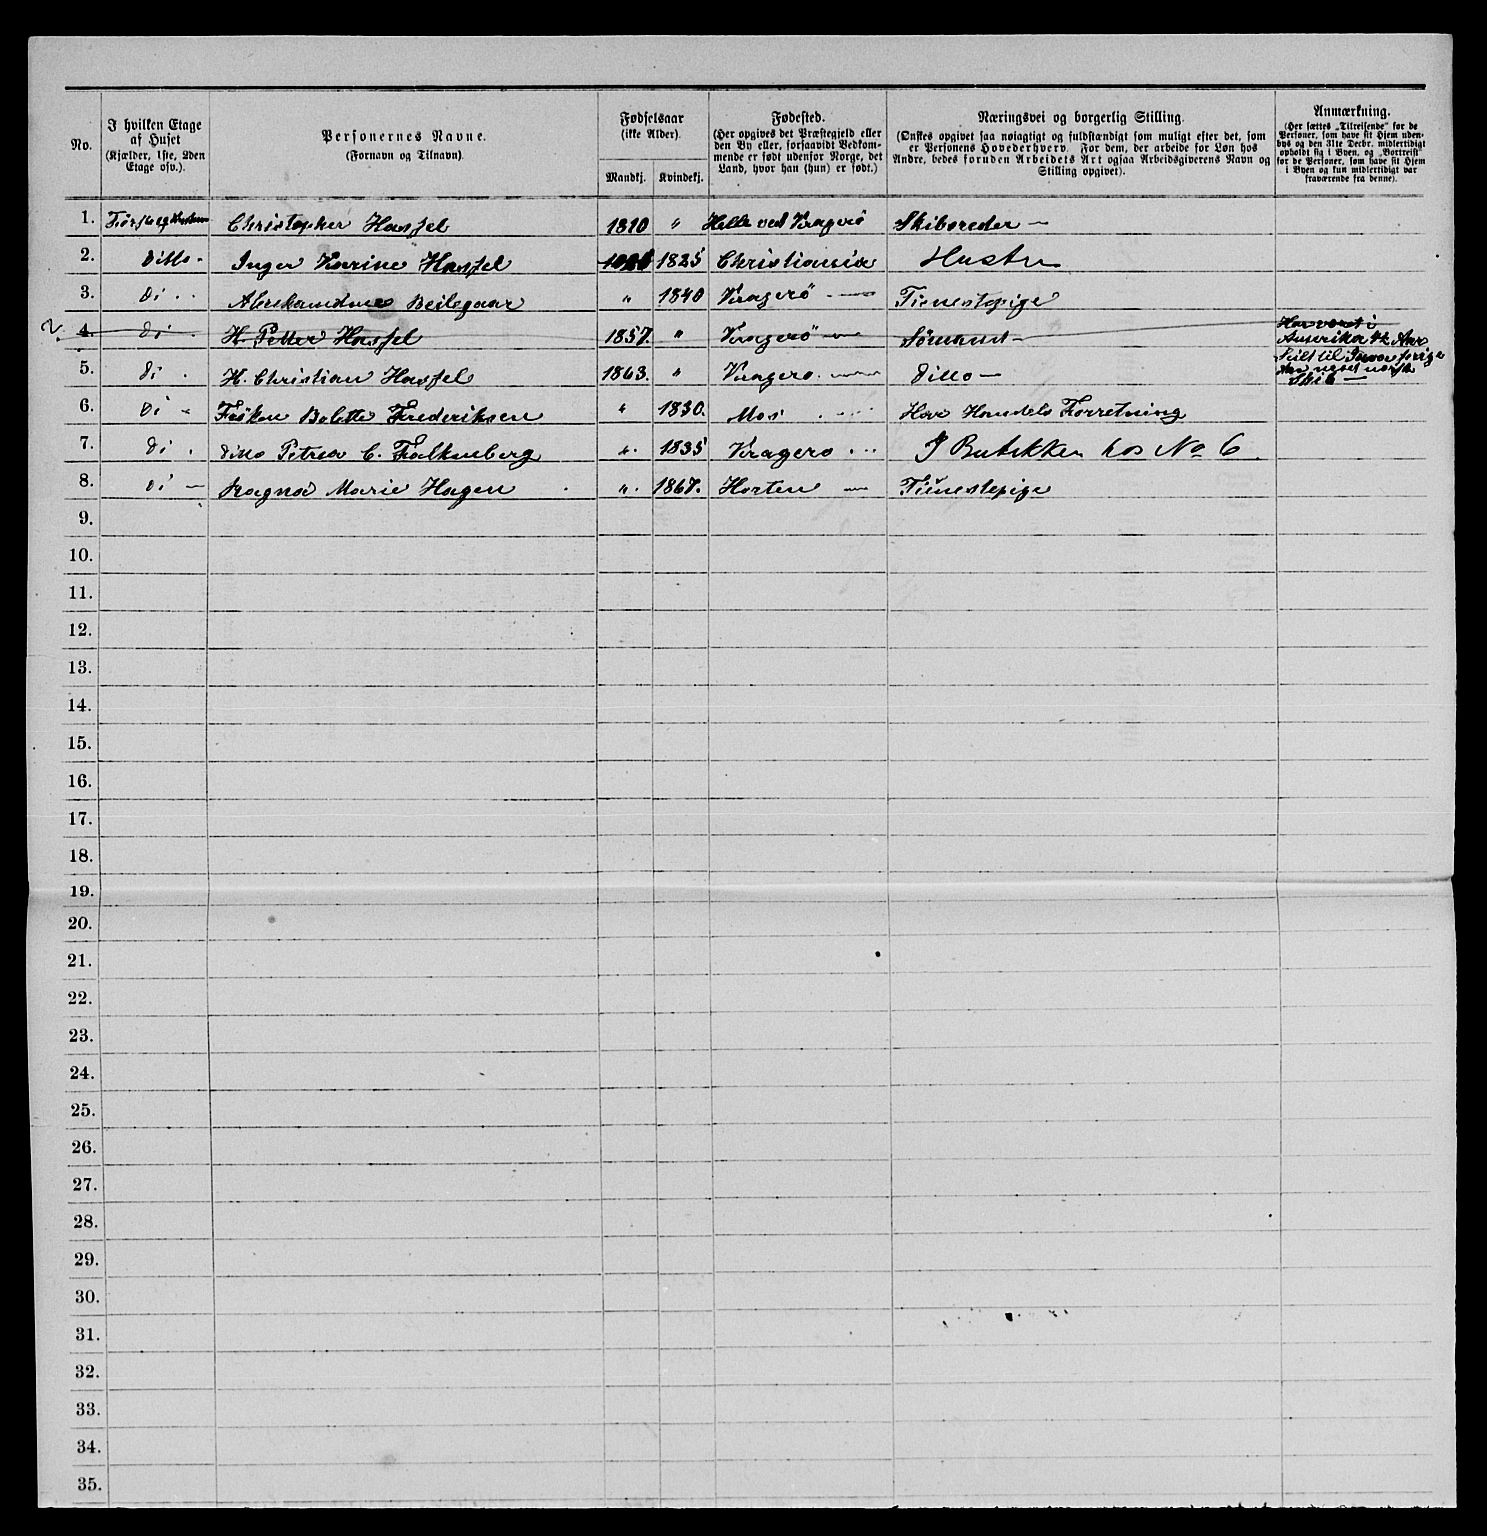 No.
I hvilken Etage af Huset
(Kjælder, 1ste, 2den Etage osv.).
Personernes Navne.
(Fornavn og Tilnavn).
Fødselsaar
(ikke Alder).
Mandkj. Kvindekj.
Fødested.
(Her opgives det Præstegjeld eller
den By eller, forsaavidt Vedkom-
mende er født udenfor Norge, det
Land, hvor han (hun) er født.)
Næringsvei og borgerlig Stilling.
(Ønskes opgivet saa nøiagtigt og fuldstændigt som muligt efter det, som
er Personens Hovederhverv. For dem, der arbeide for Løn hos
Andre, bedes foruden Arbeidets Art ogsaa Arbeidsgiverens Navn og
Stilling opgivet).
Anmærkning.
(Her sættes „Tilreisende“ for de
Personer, som have sit Hjem uden-
bys og den 31te Decbr. midlertidigt
opholdt sig i Byen, og „Bortreist“
for de Personer, som have sit Hjem
i Byen og kun midlertidigt var
fraværende fra denne).
1. Christopher Hassel 1810 " Helle ved Kragerö Skibsreder —
2. Ditto - Inger Karine Hassel 1825 Christiania Hustru
3. Di . . " 1840 Kragerö — Tienestepige
4. Di . H. Petter Hassel 1857. " Kragerö — Sömand —
Har været i
Amerika Aar
5. Di . H. Christian Hassel 1863. " Kragerø. — Ditto —
Seilt til
Skib —
6. Di - Frøken Bolette Frederiksen " 1830. Mos Har Handels Forretning
7. Di . Ditto Petrea C. Falkenberg " 1835 Kragerø . .. I Butikken hos No 6
8. Di — Ragna Marie Hagen " 1867. Horten — Tienestepige
9.
10.
11.
12.
13.
14.
15.
16.
17.
18.
19.
20.
21.
22.
23.
24.
25.
26.
27.
28.
29.
30.
31.
32.
33.
34.
35.